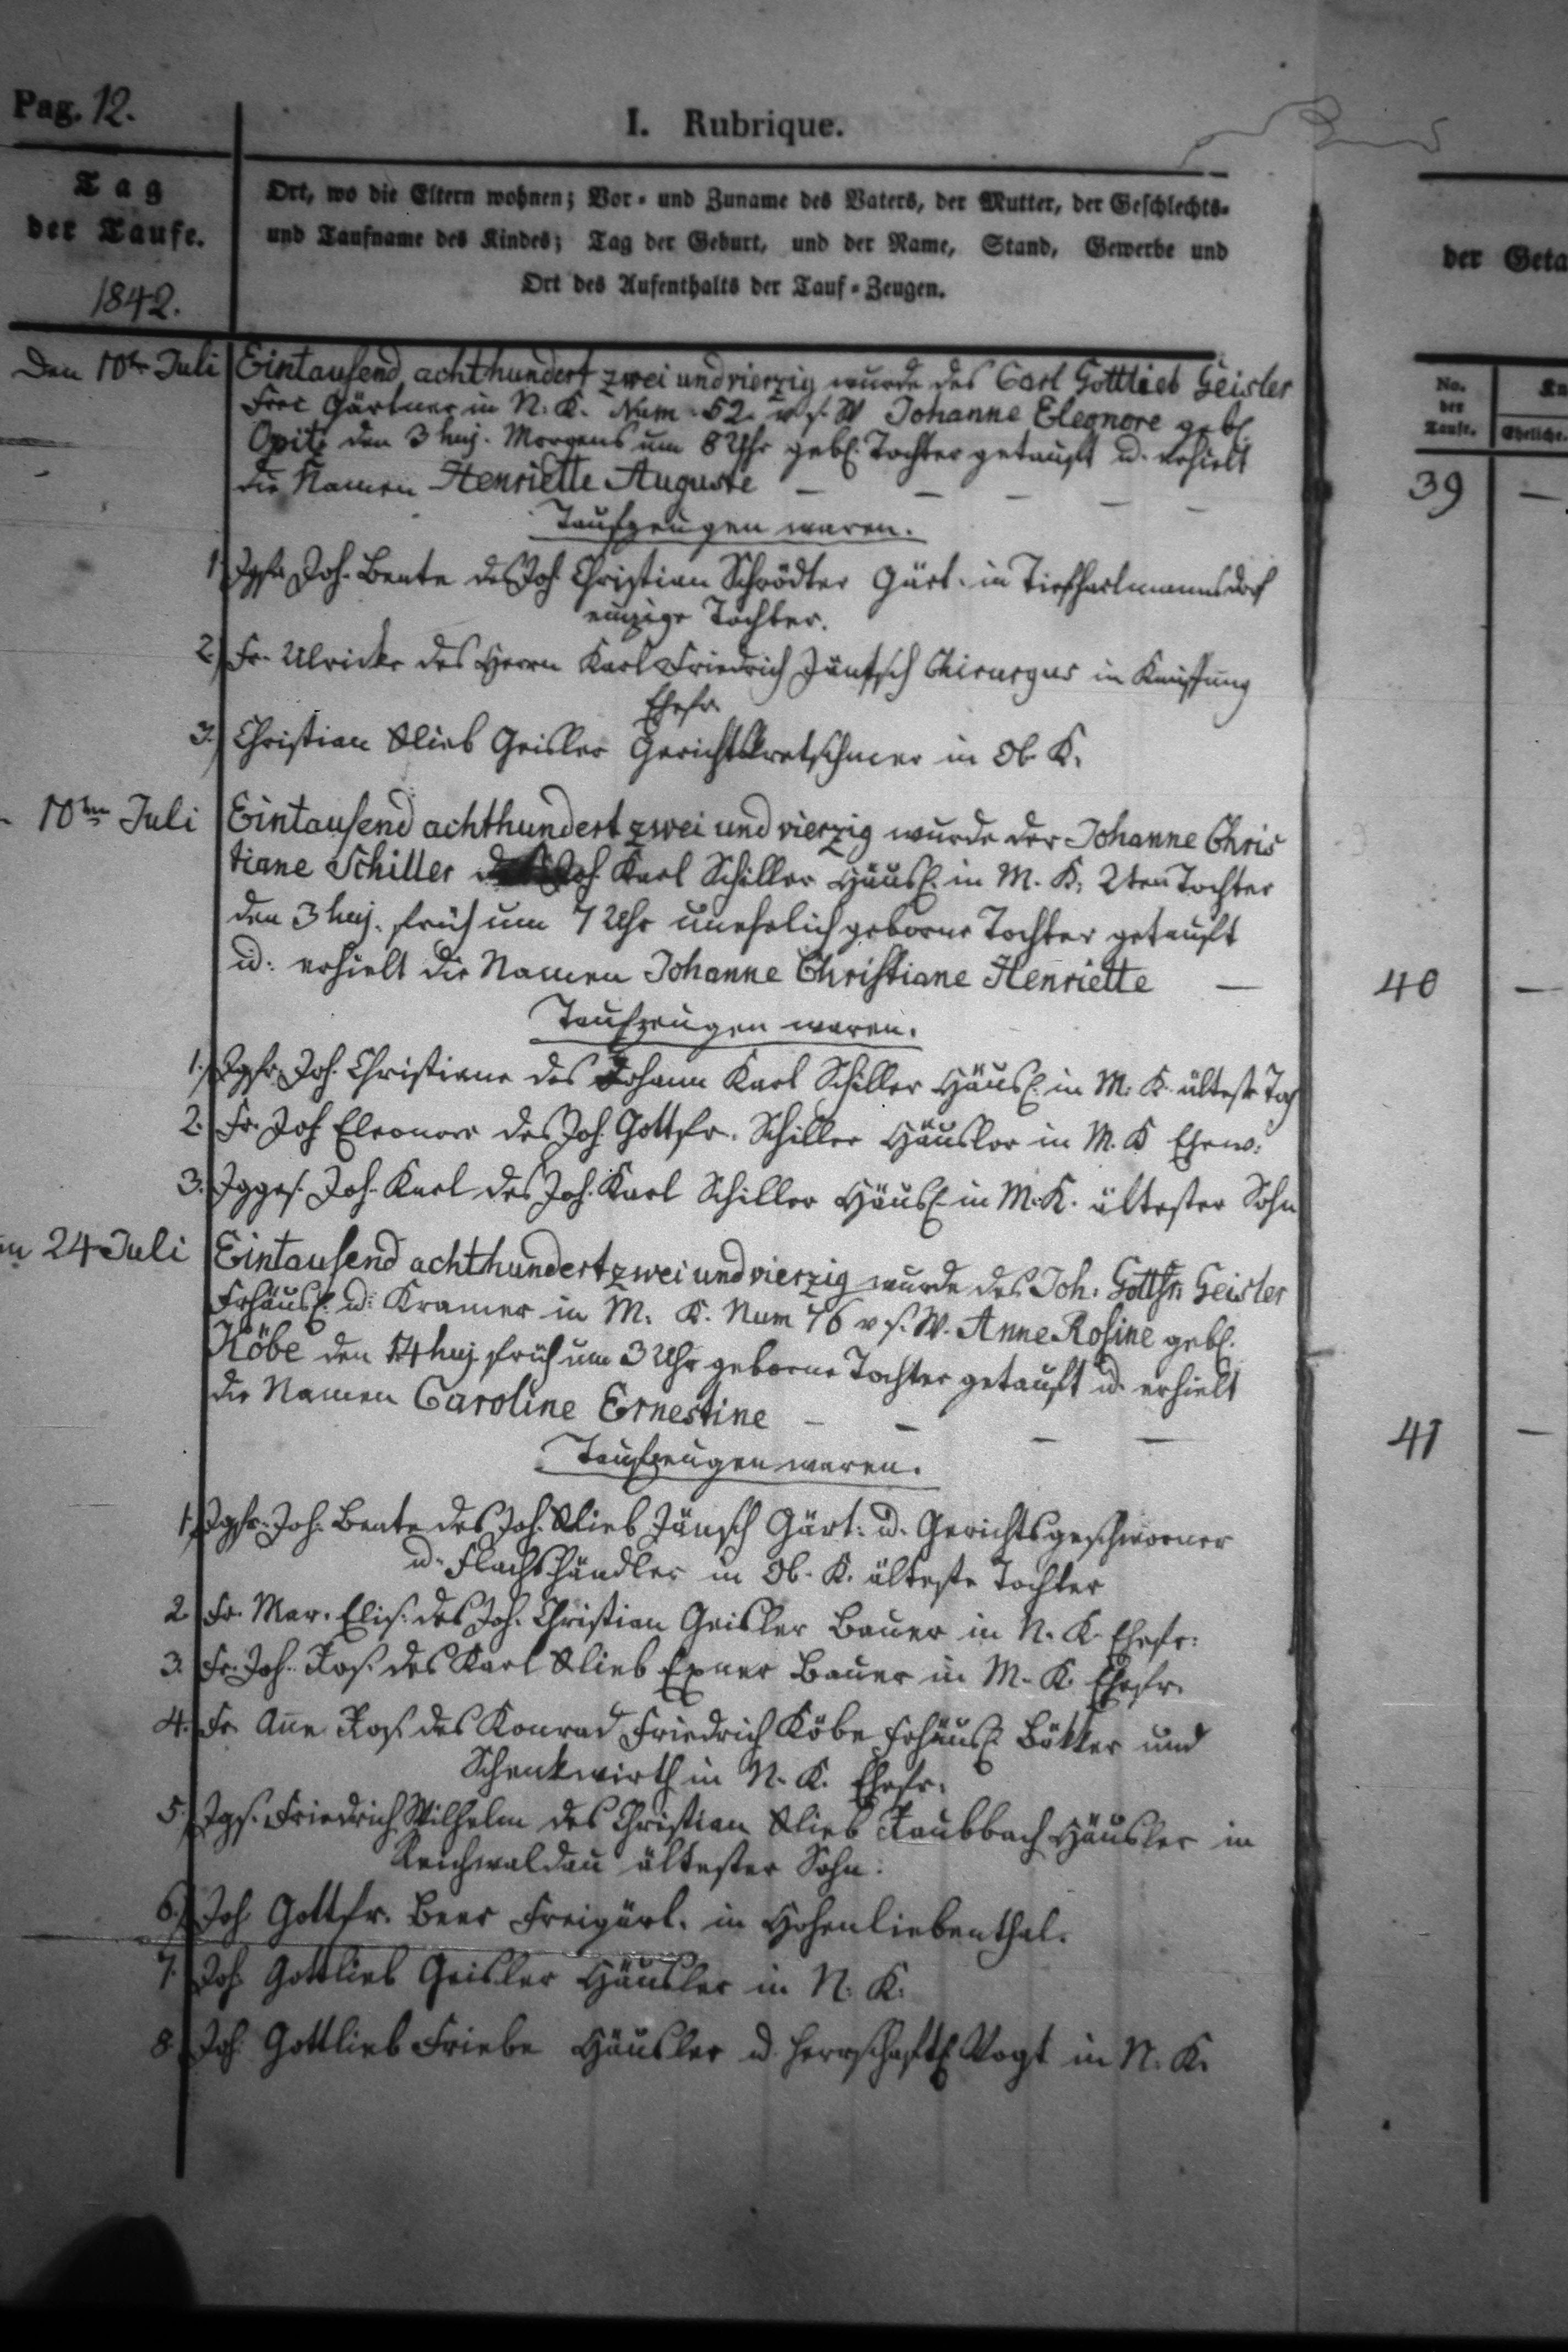 Pag. 12.
I. Rubrique.
Tag
der Taufe.
1842.
Ort, wo die Eltern wohnen; Vor- und Zuname des Vaters, der Mutter, der Geschlechts-
und Taufname des Kindes; Tag der Geburt, und der Name, Stand, Gewerbe und
Ort des Aufenthalts der Tauf-Zeugen.
der Geta
No.
der
Taufe.
Eheliche.
Den 10ten Juli
Eintausend achthundert zwei und vierzig wurde des Carl Gottlieb Geisler
Frei Gärtner in N. K. Num. 52. v s. W Johanne Eleonore geb.
Opitz den 3 huj. Morgens um 8 Uhr geb. Tochter getauft u. erhielt
die Namen Henriette Auguste — — — — —
39 —
Taufzeugen waren.
1. Jgfr. Joh. Beate des Joh. Christian Schrödter Gärt. in Tiefhartmannsdorf
einzige Tochter.
2.) Fr. Ulricke des Herrn Karl Friedrich Jäntsch Chirurgus in Kauffung
Ehefr.
3.) Christian Glieb Geisler Gerichtskretschmer in Ob. K.
- 10ten Juli
Eintausend achthundert zwei und vierzig wurde der Johanne Chris
tiane Schiller Joh Karl Schiller Häusl. in M. K. 2ten Tochter
den 3 huj. früh um 7 Uhr unehelich geborne Tochter getauft
u. erhielt die Namen Johanne Christiane Henriette —
40 —
Taufzeugen waren.
1.) Jgfr. Joh. Christiane des Johann Karl Schiller Häusl. in M. K. älteste Toch
2. Fr. Joh Eleonore des Joh. Gottfr. Schiller Häusler in M. K Ehew.
3. Jgges. Joh. Karl des Joh. Karl Schiller Häusl. in M. K. ältester Sohn
24 Juli
Eintausend achthundert zwei und vierzig wurde des Joh. Gottfr. Geisler
Frhäusl. u. Kramer in M. K. Num 76 v s. W. Anne Rosine geb.
Köbe den 14 huj. früh um 3 Uhr geborne Tochter getauft u. erhielt
die Namen Caroline Ernestine — — — —
41 —
Taufzeugen waren.
1.) Jgfr. Joh. Beate des Joh. Glieb Jänsch Gärt. u. Gerichtsgeschworner
u. Flachshändler in Ob. K. älteste Tochter
2 Fr. Mar. Elis. des Joh. Christian Geisler Bauer in N. K. Ehefr.
3. Fr. Joh. Ros. des Karl Glieb Exner Bauer in M. K. Ehefr.
4. Fr. Anne Ros. des Konrad Friedrich Köbe Frhäusl. Bötker und
Schenkwirth in N. K. Ehefr.
5.) Jgs. Friedrich Wilhelm des Christian Glieb Raubbach Häusler in
Reichwaldau ältester Sohn.
6.) Joh Gottfr. Beer Freigärt. in Hohenliebenthal.
7. Joh. Gottlieb Geisler Häusler in N. K.
8 Joh. Gottlieb Friebe Häusler u. herrschaftl. Vogt in N. K.